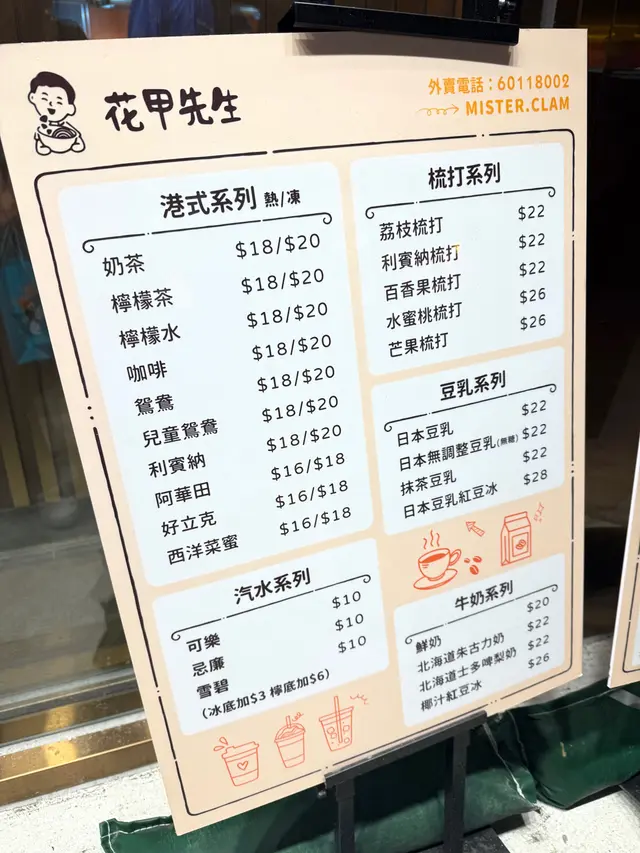 花甲先生
外賣電話：60118002
MISTER.CLAM
港式系列 熱/凍
奶茶 $18/$20
檸檬茶 $18/$20
檸檬水 $18/$20
咖啡 $18/$20
鴛鴦 $18/$20
兒童鴛鴦 $18/$20
利賓納 $18/$20
阿華田 $16/$18
好立克 $16/$18
西洋菜蜜 $16/$18
汽水系列
可樂 $10
忌廉 $10
雪碧 $10
(冰底加$3 檸底加$6)
梳打系列
荔枝梳打 $22
利賓納梳打 $22
百香果梳打 $22
水蜜桃梳打 $26
芒果梳打 $26
豆乳系列
日本豆乳 $22
日本無調整豆乳(無糖) $22
抹茶豆乳 $22
日本豆乳紅豆冰 $28
牛奶系列
鮮奶 $20
北海道朱古力奶 $22
北海道士多啤梨奶 $22
椰汁紅豆冰 $26